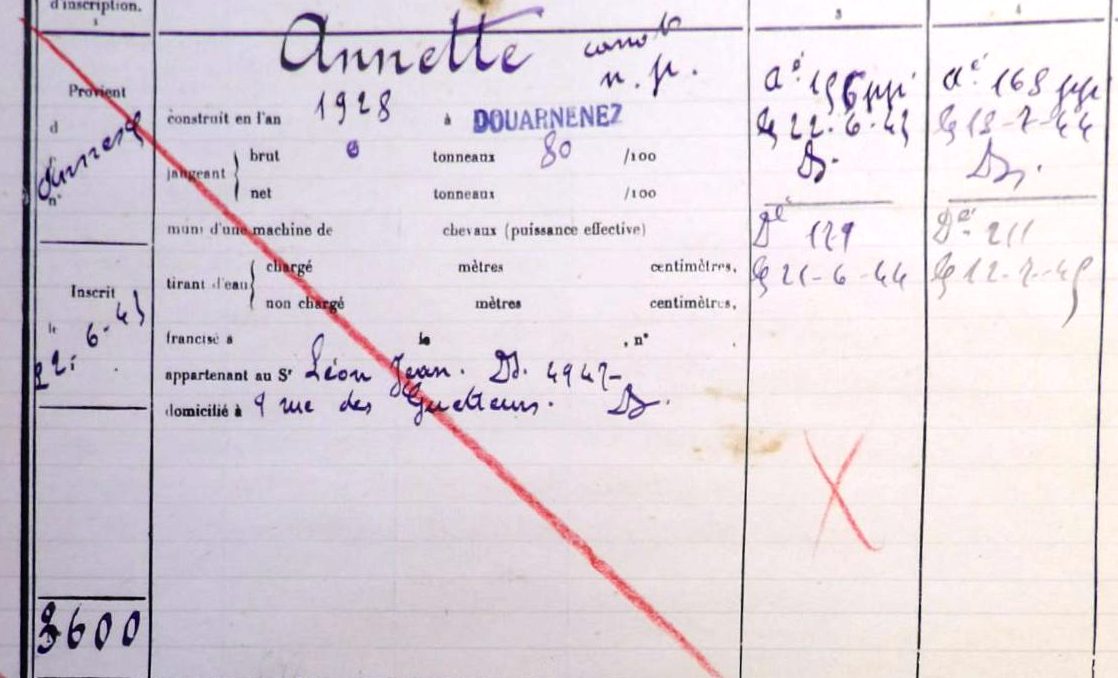 d'inscription.
3
4
Provient
d
n°
Inscrit
le
22- 6-43
3600
Annette canot
n. p.
construit en l'an 1928 à DOUARNENEZ
jaugeant
brut 0 tonneaux 80 /100
net tonneaux /100
muni d'une machine de chevaux (puissance effective)
tirant d'eau
chargé mètres centimètres,
non chargé mètres centimètres,
francisé à le , n° .
appartenant au Sr Léon Jean. Dz. 4947-
domicilié à 9 rue des Guetteurs. Dz.
aé 156
le 22-6-43
Dz.
Dé 129
le 21-6-44
aé 168
le 13-7-44
Dz.
Dé 211
le 12-7-45